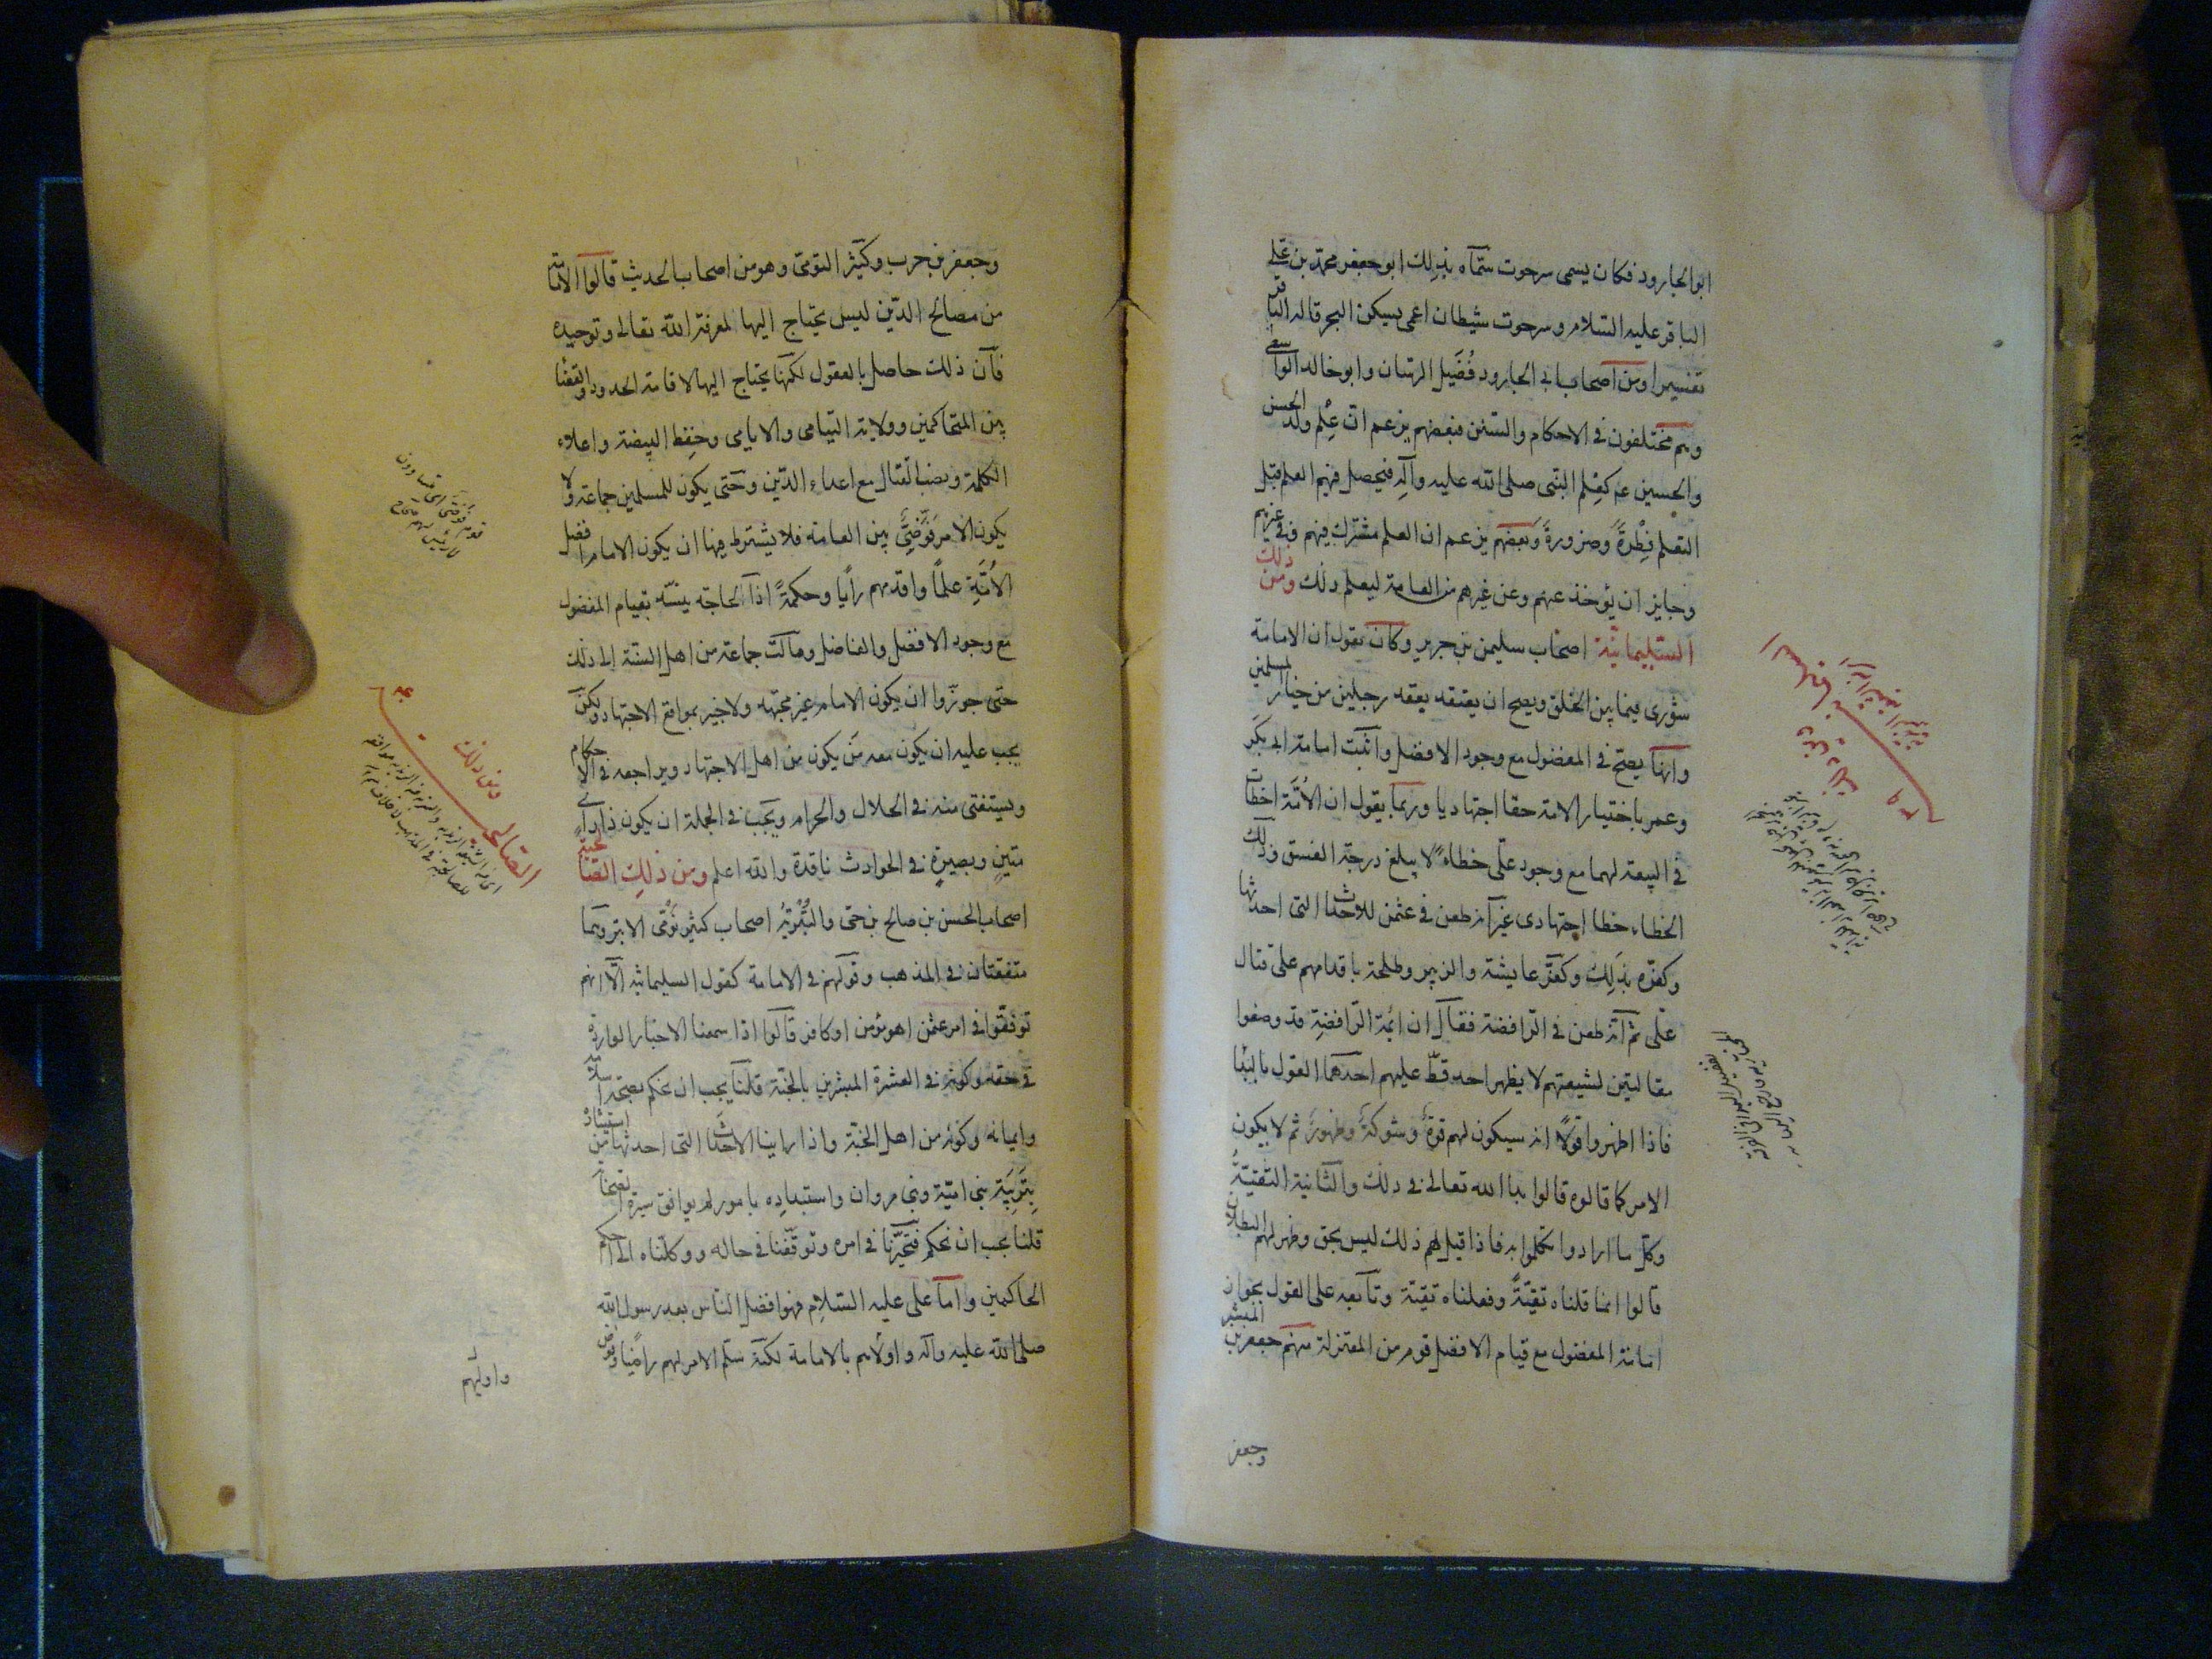 ابو الجارود فكان يسمى سرحوت سمّاه بذلك ابو جعفر محمد بن علی
الباقر عليه السلام وسرحوت شيطان اعمى يسكن البحر قاله الباقر
تفسيرا ومن اصحاب ابى الجارود فُضَيل الرسّان وابو خالد الواسطى
وهم مختلفون فى الاحكام والسنن فبعضهم يزعم ان عِلم ولد الحسن
والحسين عم كعِلم النبى صلى الله عليه وآلِه فيحصل فيهم العلم قبل
التعلم فِطْرةً وضرورةً وبعضهم يزعم ان العلم مشترك فيهم وفى غيرهم
وجايز ان يؤخذ عنهم وعن غيرهم من العامة ليعلم ذلك ومن ذلك
السليمانية اصحاب سليمن بن جرير وكان يقول ان الامامة
شورى فيما بين الخلق ويصح ان ينعقد بعقد رجلين من خيار المسلمين
وانها يصح فى المفضول مع وجود الافضل واثبت امامة ابى بكر
وعمر باختيار الامة حقا اجتهاديا وربما يقول ان الامّة اخطات
فى البيعة لهما مع وجود علّى خطاءً لا يبلغ درجة الفسق وذلك
الخطاء خطا اجتهادى غير انه طعن فى عثمن للاحداث التى احدثها
وكفّره بذلك وكفّر عايشة والزبير وطلحة باقدامهم على قتال
علّى ثم انّه طعن فى الرّافضة فقال ان ائمة الرّافضة قد وضعوا
مقالتين لشيعتهم لا يظهر احد قطّ عليهم احدهما القول بالبدا
فاذا اظهروا قولًا انه سيكون لهم قوة وشوكة وظهور ثم لا يكون
الامر كما قالوه قالوا بدا الله تعالى فى ذلك والثانية التقيّة
وكل ما ارادوا تكلموا به فاذا قيل لهم ذلك ليس بحق وظهر لهم البطلان
قالوا انما قلناه تقيّةً وفعلناه تقيّة وتابعه على القول بجواز
امامة المفضول مع قيام الافضل قوم من المعتزلة منهم جعفر بن المبشر
وجعفر
وجعفر بن حرب وكثير النومى وهو من اصحاب الحديث قالوا الامامة
من مصالح الدّين ليس يحتاج اليها لمعرفة الله تعالى وتوحيده
فانّ ذلك حاصل بالعقول لكنها يحتاج اليها لاقامة الحدود والقضا
بين المتحاكمين وولاية اليتامى والايامى وحفظ البيضة واعلاء
الكلمة ونصب القتال مع اعداء الدّين وحتى يكون للمسلمين جماعة ولا
يكون الامر فَوْضىً بين العامة فلا يشترط فيها ان يكون الامام افضل
الاُمّةِ علمًا واقدمهم رايًا وحكمةً اذ الحاجة ينسّد بقيام المفضول
مع وجود الافضل والفاضل ومالت جماعة من اهل السنّة الى ذلك
حتى جوزّوا ان يكون الامام غير مجتهد ولا خبير بمواقع الاجتهاد ولكن
يجب عليه ان يكون معه مَن يكون من اهل الاجتهاد ويراجعه فى الاحكام
ويستفتى منه فى الحلال والحرام ويجب فى الجملة ان يكون ذا راى
متين وبصيرةٍ فى الحوادث ناقدة والله اعلم ومن ذلك الصالحية
اصحاب الحسن بن صالح بن حىّ والبُتْريّة اصحاب كثير نَوْمى الابتر وهما
متفقتان فى المذهب وقولهم فى الامامة كقول السليمانية الّا انهم
توقّفوا فى امر عثمن اهو مؤمن او كافر قالوا اذا سمعنا الاخبار الواردة
فى حقه وكونه فى العشرة المبشرين بالجنّة قلنا يجب ان نحكم بصحة اسلامه
وايمانه وكونه من اهل الجنّة واذا راينا الاحداث التى احدثها من استهتاره
بتَربية بنى اميّة وبنى مروان واستبداده بامور لم يوافق سيرة الصحابة
قلنا يجب ان نحكم فتحيّرنا فى امره وتوقّفنا فى حاله ووكلناه الى احكم
الحاكمين وامّا على عليه السّلام فهو افضل النّاس بعد رسول الله
صلى الله عليه وآله واولاهم بالامامة لكنّه سلّم الامر لهم راضيًا وفوض
واوليهم
ومن ذلك
الصالحية